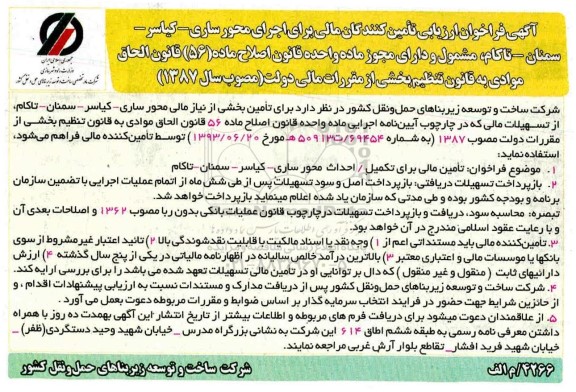 آگهی فراخوان ارزیابی تأمین کنندگان مالی برای اجرای محور ساری – کیاسر –
سمنان – تاکام، مشمول و دارای مجوز ماده واحده قانون اصلاح ماده (۵۶) قانون الحاق
موادی به قانون تنظیم بخشی از مقررات مالی دولت (مصوب سال ۱۳۸۷)
شرکت ساخت و توسعه زیربناهای حمل‌ونقل کشور در نظر دارد برای تأمین بخشی از نیاز مالی محور ساری- کیاسر- سمنان-تاکام،
از تسهیلات مالی که در چارچوب آیین‌نامه اجرایی ماده واحده قانون اصلاح ماده ۵۶ قانون الحاق موادی به قانون تنظیم بخشی از
مقررات دولت مصوب ۱۳۸۷ (به شماره ۶۹۴۵۴/ت۵۰۹۱۳هـ مورخ ۱۳۹۳/۰۶/۲۰) توسط تأمین‌کننده مالی فراهم می‌شود،
استفاده نماید:
۱. موضوع فراخوان: تأمین مالی برای تکمیل / احداث محور ساری- کیاسر- سمنان-تاکام
۲. بازپرداخت تسهیلات دریافتی: بازپرداخت اصل و سود تسهیلات پس از طی شش ماه از اتمام عملیات اجرایی با تضمین سازمان
برنامه و بودجه کشور بوده و طی مدتی که سازمان یاد شده اعلام مینماید بازپرداخت خواهد شد.
تبصره: محاسبه سود، دریافت و بازپرداخت تسهیلات درچارچوب قانون عملیات بانکی بدون ربا مصوب ۱۳۶۲ و اصلاحات بعدی آن
و با رعایت عقود اسلامی مندرج در آن خواهد بود.
۳. تأمین‌کننده مالی باید مستنداتی اعم از ۱) وجه نقد یا اسناد مالکیت با قابلیت نقدشوندگی بالا ۲) تائید اعتبار غیرمشروط از سوی
بانکها یا موسسات مالی و اعتباری معتبر ۳) بالاترین درآمد خالص سالیانه در اظهارنامه مالیاتی در یکی از پنج سال گذشته ۴) ارزش
دارائیهای ثابت ( منقول و غیر منقول ) که دال بر توانایی او در تأمین مالی تسهیلات تعهد شده می باشد را برای بررسی ارایه کند.
۴. شرکت ساخت و توسعه زیربناهای حمل‌ونقل کشور پس از دریافت مدارک و مستندات نسبت به ارزیابی پیشنهادات اقدام ، و
از حائزین شرایط جهت حضور در فرایند انتخاب سرمایه گذار بر اساس ضوابط و مقررات مربوطه دعوت بعمل می آورد .
۵. از علاقمندان دعوت میشود برای دریافت فرم های مربوطه و اطلاعات بیشتر از تاریخ انتشار این آگهی بهمدت ده روز با همراه
داشتن معرفی نامه رسمی به طبقه ششم اطاق ۶۱۴ این شرکت به نشانی بزرگراه مدرس _ خیابان شهید وحید دستگردی(ظفر) _
خیابان شهید فرید افشار_ تقاطع بلوار آرش غربی مراجعه نمایند.
۴۲۶۶/م الف
شرکت ساخت و توسعه زیربناهای حمل و نقل کشور